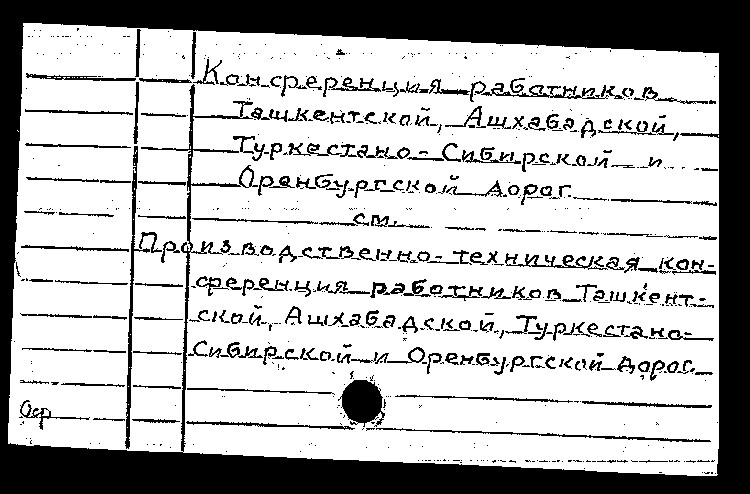 Конференция работников
Ташкентской, Ашхабадской,
Туркестано-Сибирской и
Оренбургской дорог.
см.
Производственно-техническая кон-
ференция работников Ташкент-
ской, Ашхабадской, Туркестано-
Сибирской и Оренбургской дорог.